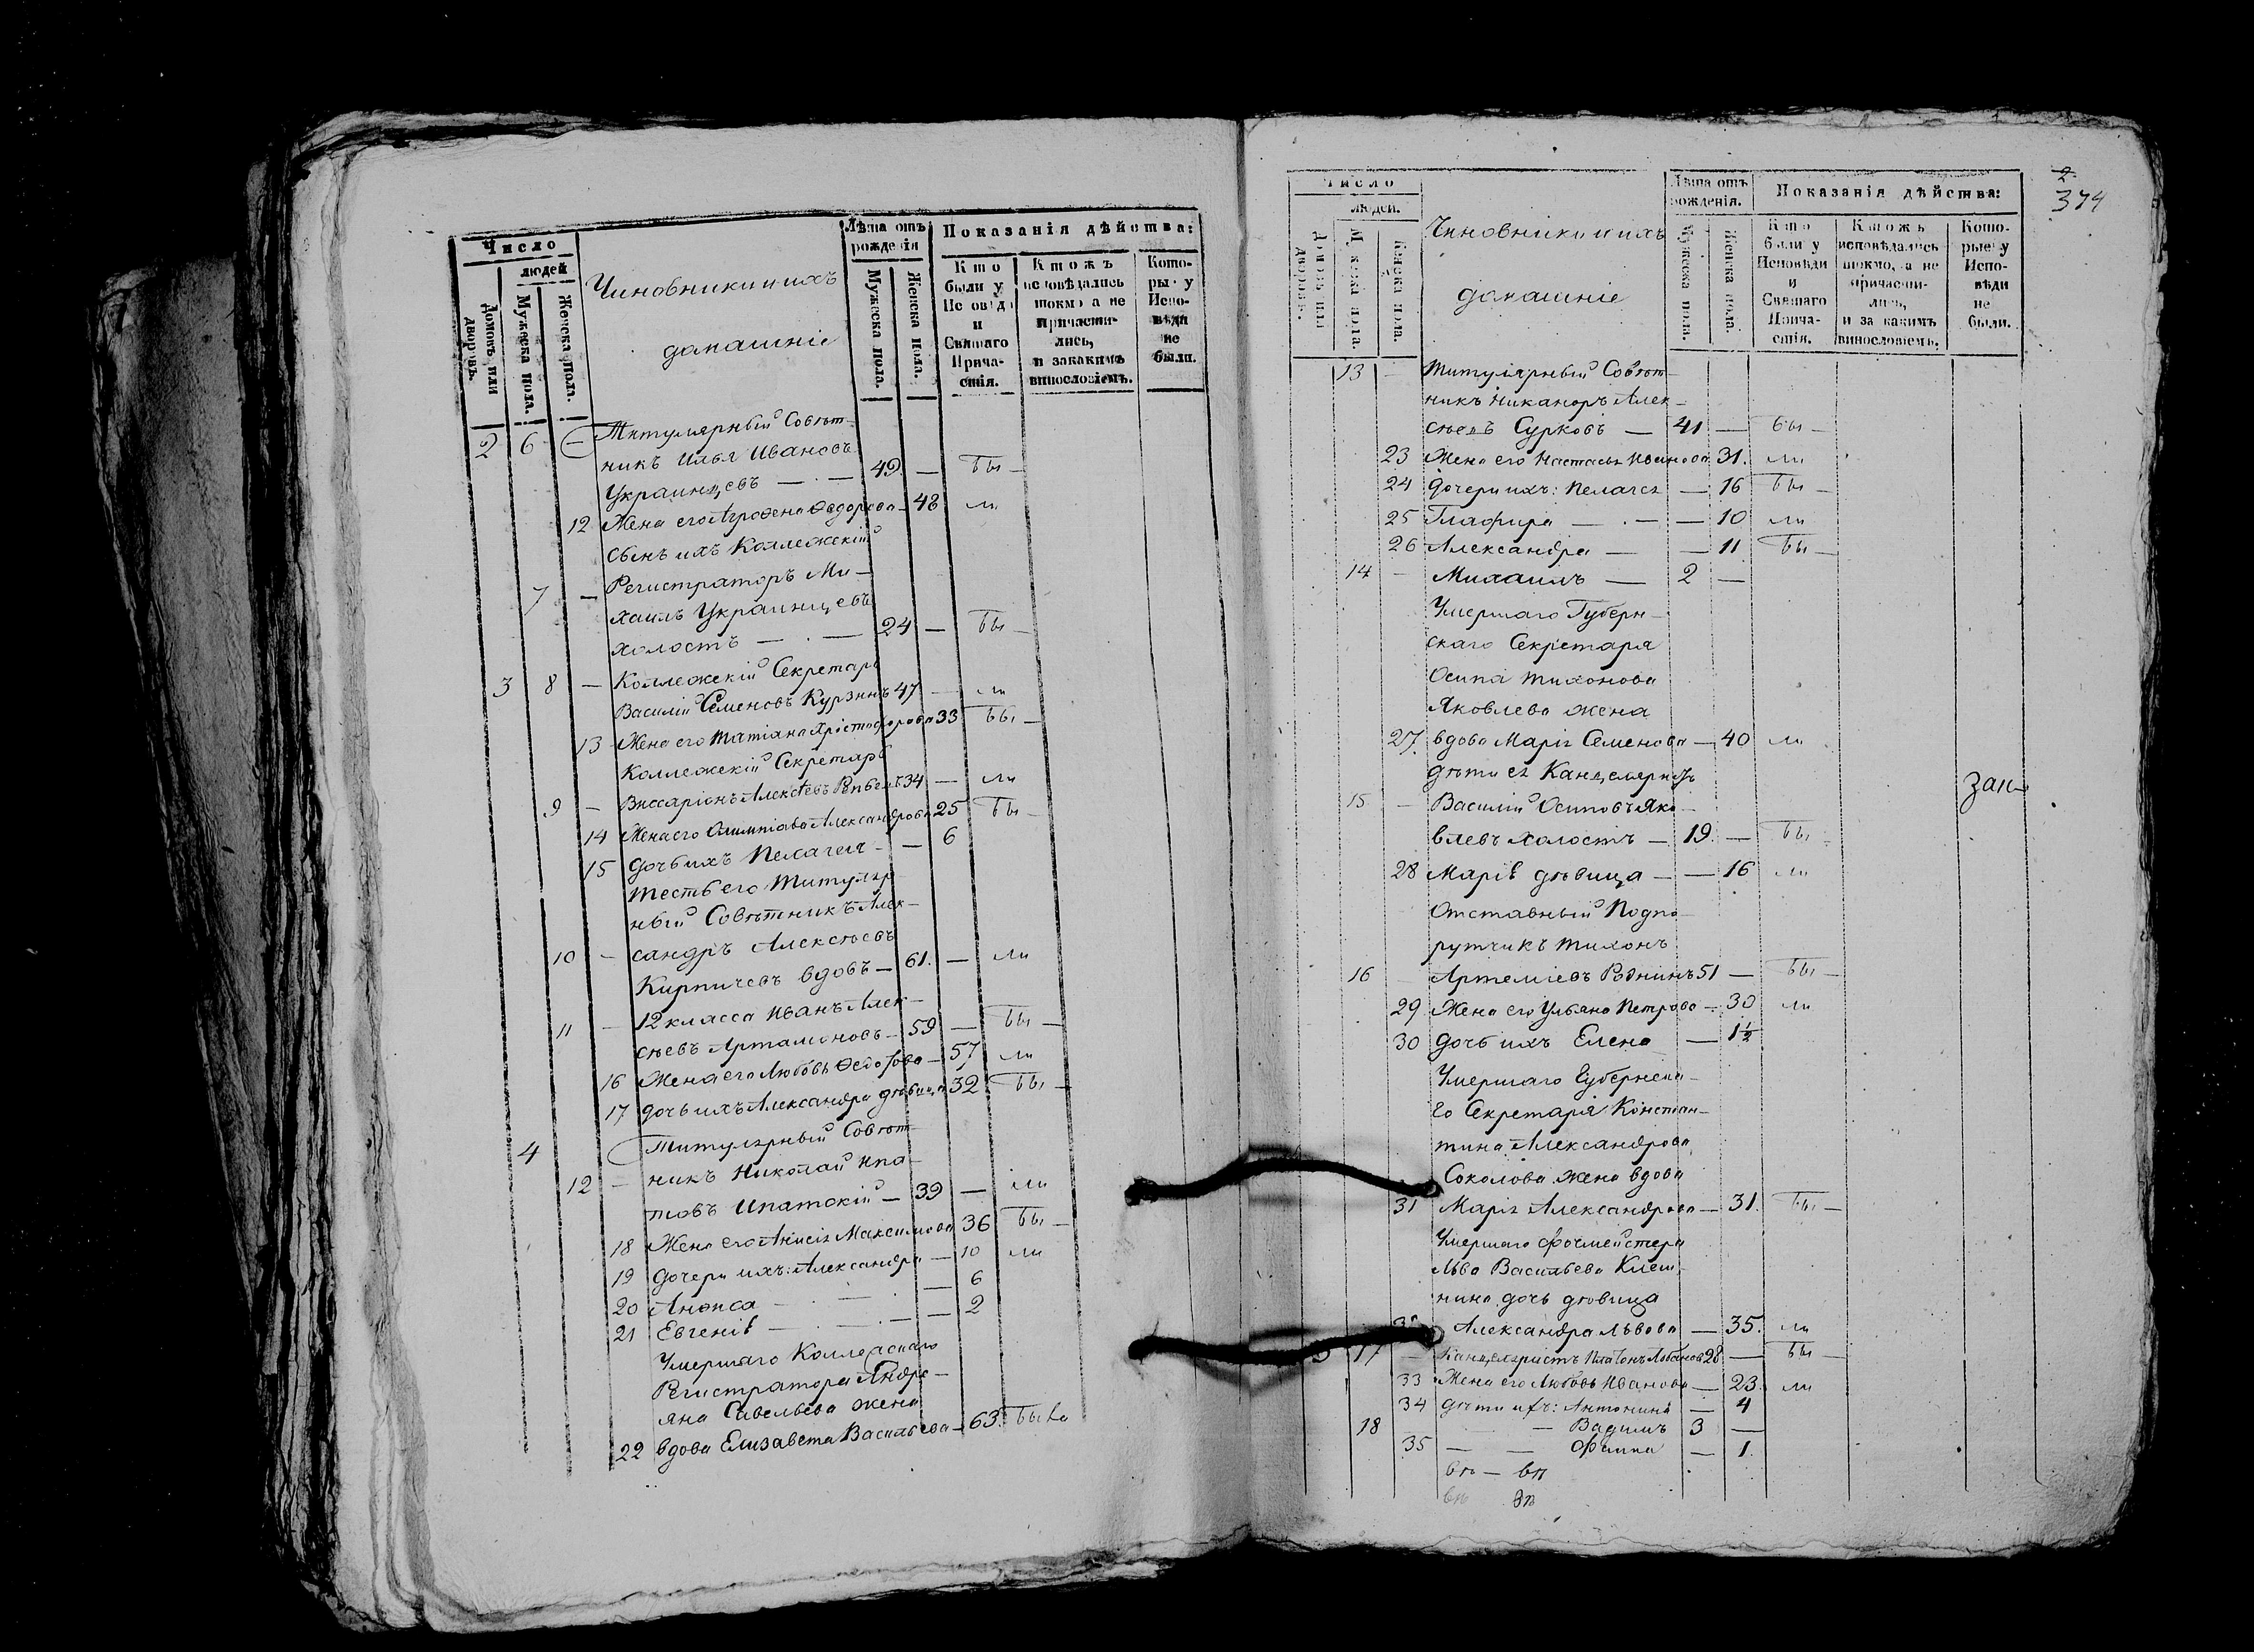 Число
людей
Домовъ или дворовъ.
Мужеска пола.
Женска пола.
Чиновники и ихъ
домашніе
Лѣта отъ рожденія
Мужеска пола.
Женска пола.
Показанія дѣйства:
Кто были у Исповѣди и Святаго Прича-стія.
Ктожъ исповѣдались токмо а не причасти-лись, и за какимъ винословіемъ.
Кото-рые у Испо-вѣди не были.
2 6 — Титулярный Совѣт-
никъ Илья Ивановъ
Украинцевъ — . — 49. — бы —
12 Жена его Агрофена Федорова — 48 ли
Сынъ ихъ Коллежскій
7 — Регистраторъ Ми-
хаилъ Украинцевъ
холостъ — . — 24 — бы —
3 8 — Коллежскій Секретарь
Василій Семеновъ 47 — ли
13 Жена его Татіана Христофорова 33 бы —
Коллежскій Секретарь
9 — Виссаріонъ Алексѣевъ 34 — ли
14 Жена его Александрова 25 бы —
15 Дочь ихъ Пелагея — — 6
Тесть его Титуляр-
ный Совѣтникъ Алек-
10 — сандръ Алексѣевъ
Кирпичевъ вдовъ — 61. — ли
11 — 12 класса Иванъ Алек-
сѣевъ Артамоновъ — 59 — бы —
16 Жена его Любовь Федорова — 57 ли
17 дочь ихъ Александра дѣвица 32 бы —
4 Титулярный Совѣт-
12 — никъ Николай Ипа-
товъ Ипатскій — 39 — ли
18 Жена его Анисія Максимова 36 бы —
19 Дочери ихъ: Александра — 10 ли
20 Анфиса — . — — 6
21 Евгенія — . — . — 2
Умершаго Коллежскаго
Регистратора Андре-
яна Савельева жена
22 вдова Елизавета Васильева — 63. была
2.
374
Число
людей.
Домовъ или дворовъ.
Мужеска пола.
Женска пола.
Чиновники и ихъ
домашніе
Лѣта отъ рожденія.
Мужеска пола.
Женска пола.
Показанія дѣйства:
Кто были у Исповѣди и Святаго Прича-стія.
Ктожъ исповѣдались токмо, а не причасти-лись, и за какимъ винословіемъ.
Кото-рые у Испо-вѣди не были.
13 — Титулярный Совѣт-
никъ Никаноръ Алек-
сѣевъ Сурковъ — 41 — бы —
23 Жена его Настасья Иванова 31. ли
24 Дочери ихъ: Пелагея — 16 бы —
25 Глафира — . — — 10 ли
26 Александра — — 11 бы —
14 — Михаилъ — 2 —
Умершаго Губерн-
скаго Секретаря
Осипа Тихонова
Яковлева жена
27. вдова Марія Семенова — 40 ли
дѣти ея Канцеляристъ
15 — Василій Осиповъ Яко-
влевъ холостъ — 19. — бы —
28 Марія дѣвица — — 16 ли
Отставный Подпо-
рутчикъ Тихонъ
16 Артеміевъ Роднинъ 51 — бы —
29 Жена его Ульяна Петрова — 30 ли
30 дочь ихъ Елена — 1½
Умершаго Губернска-
го Секретаря Констан-
тина Александрова
Соколова жена вдова
31 Марія Александрова — 31. бы —
Умершаго Форшмейстера
Льва Васильева Клем-
нина дочь дѣвица
Александра Львова — 35. ли
17 — Канцеляристъ Платонъ Лобановъ 28 — бы —
33 Жена его Любовь Иванова — 23. ли
34 дѣти ихъ: Антонина — 4
18 — Вадимъ 3 —
35 — — Фаина — 1.